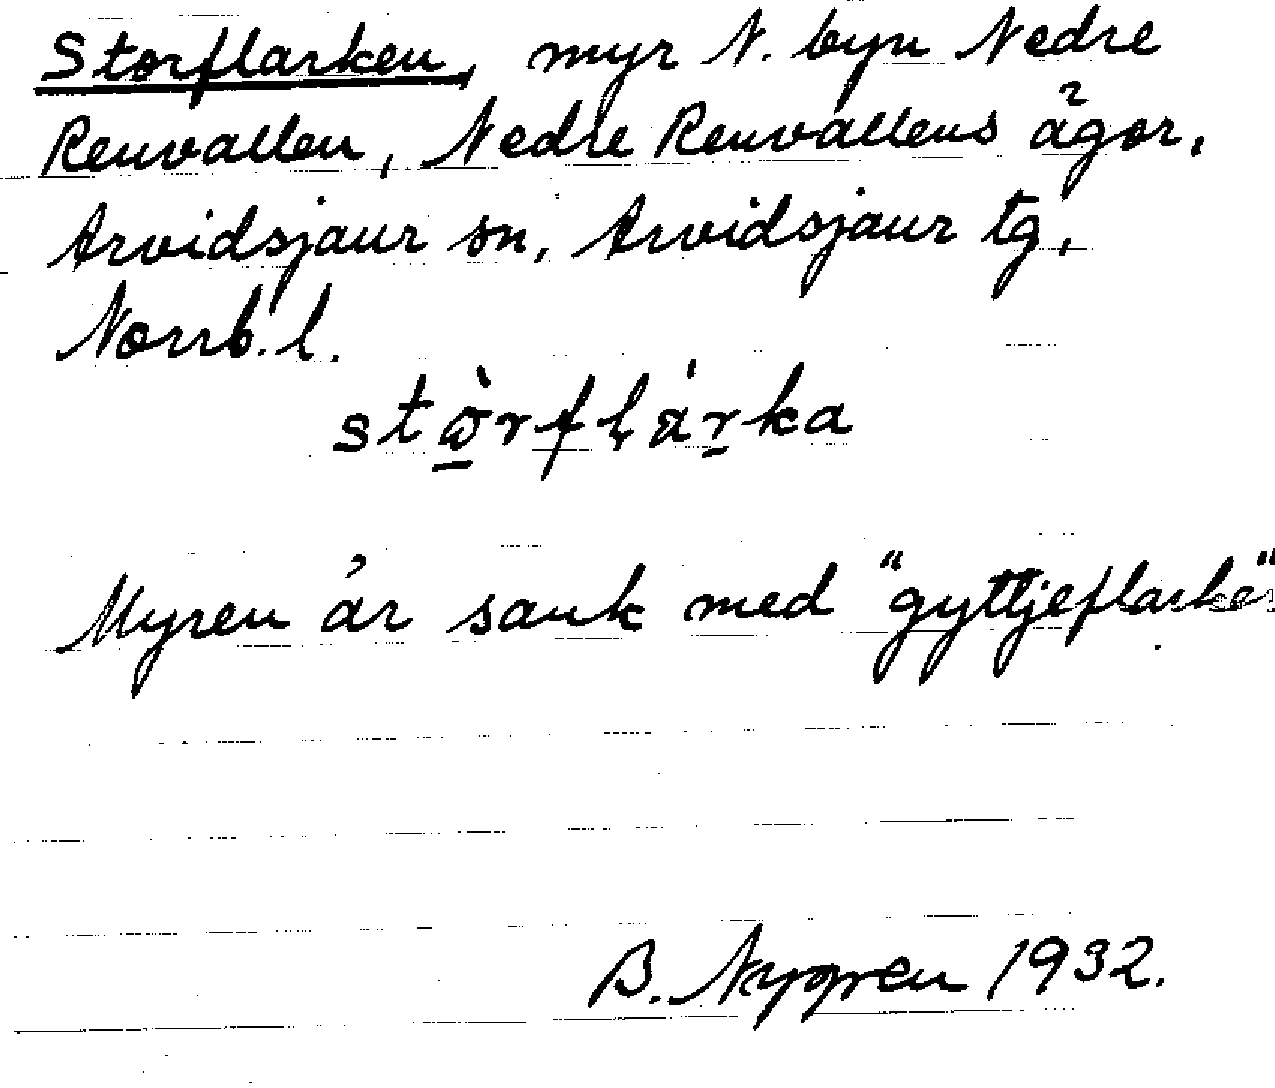 Storflarken, myr N. byn Nedre
Renvallen, Nedre Renvallens ägor,
Arvidsjaur sn, Arvidsjaur tg,
Norrb. l.
Myren är sank med "gyttjeflarke".
B. Nygren 1932.